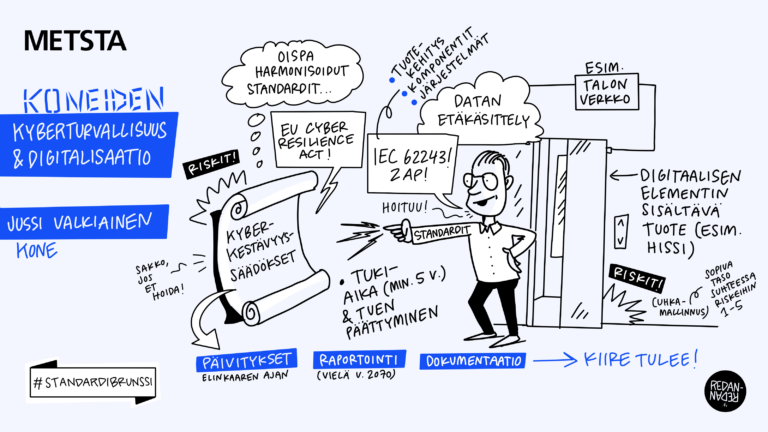 METSTA
KONEIDEN
KYBERTURVALLISUUS
& DIGITALISAATIO
JUSSI VALKIAINEN
KONE
OISPA
HARMONISOIDUT
STANDARDIT...
EU CYBER
RESILIENCE
ACT!
RISKIT!
KYBER-
KESTÄVYYS-
SÄÄDÖKSET
SAKKO,
JOS
ET
HOIDA!
• TUOTE-
KEHITYS
• KOMPONENTIT
• JÄRJESTELMÄT
DATAN
ETÄKÄSITTELY
IEC 62243!
ZAP!
HOITUU!
STANDARDIT
• TUKI-
AIKA (MIN. 5 V.)
& TUEN
PÄÄTTYMINEN
ESIM.
TALON
VERKKO
DIGITAALISEN
ELEMENTIN
SISÄLTÄVÄ
TUOTE (ESIM.
HISSI)
RISKIT!
(UHKA-
MALLINNUS)
SOPIVA
TASO
SUHTEESSA
RISKEIHIN
1-5
PÄIVITYKSET
ELINKAAREN AJAN
RAPORTOINTI
(VIELÄ V. 2070)
DOKUMENTAATIO
KIIRE TULEE!
#STANDARDIBRUNSSI
REDAN-
REDAN